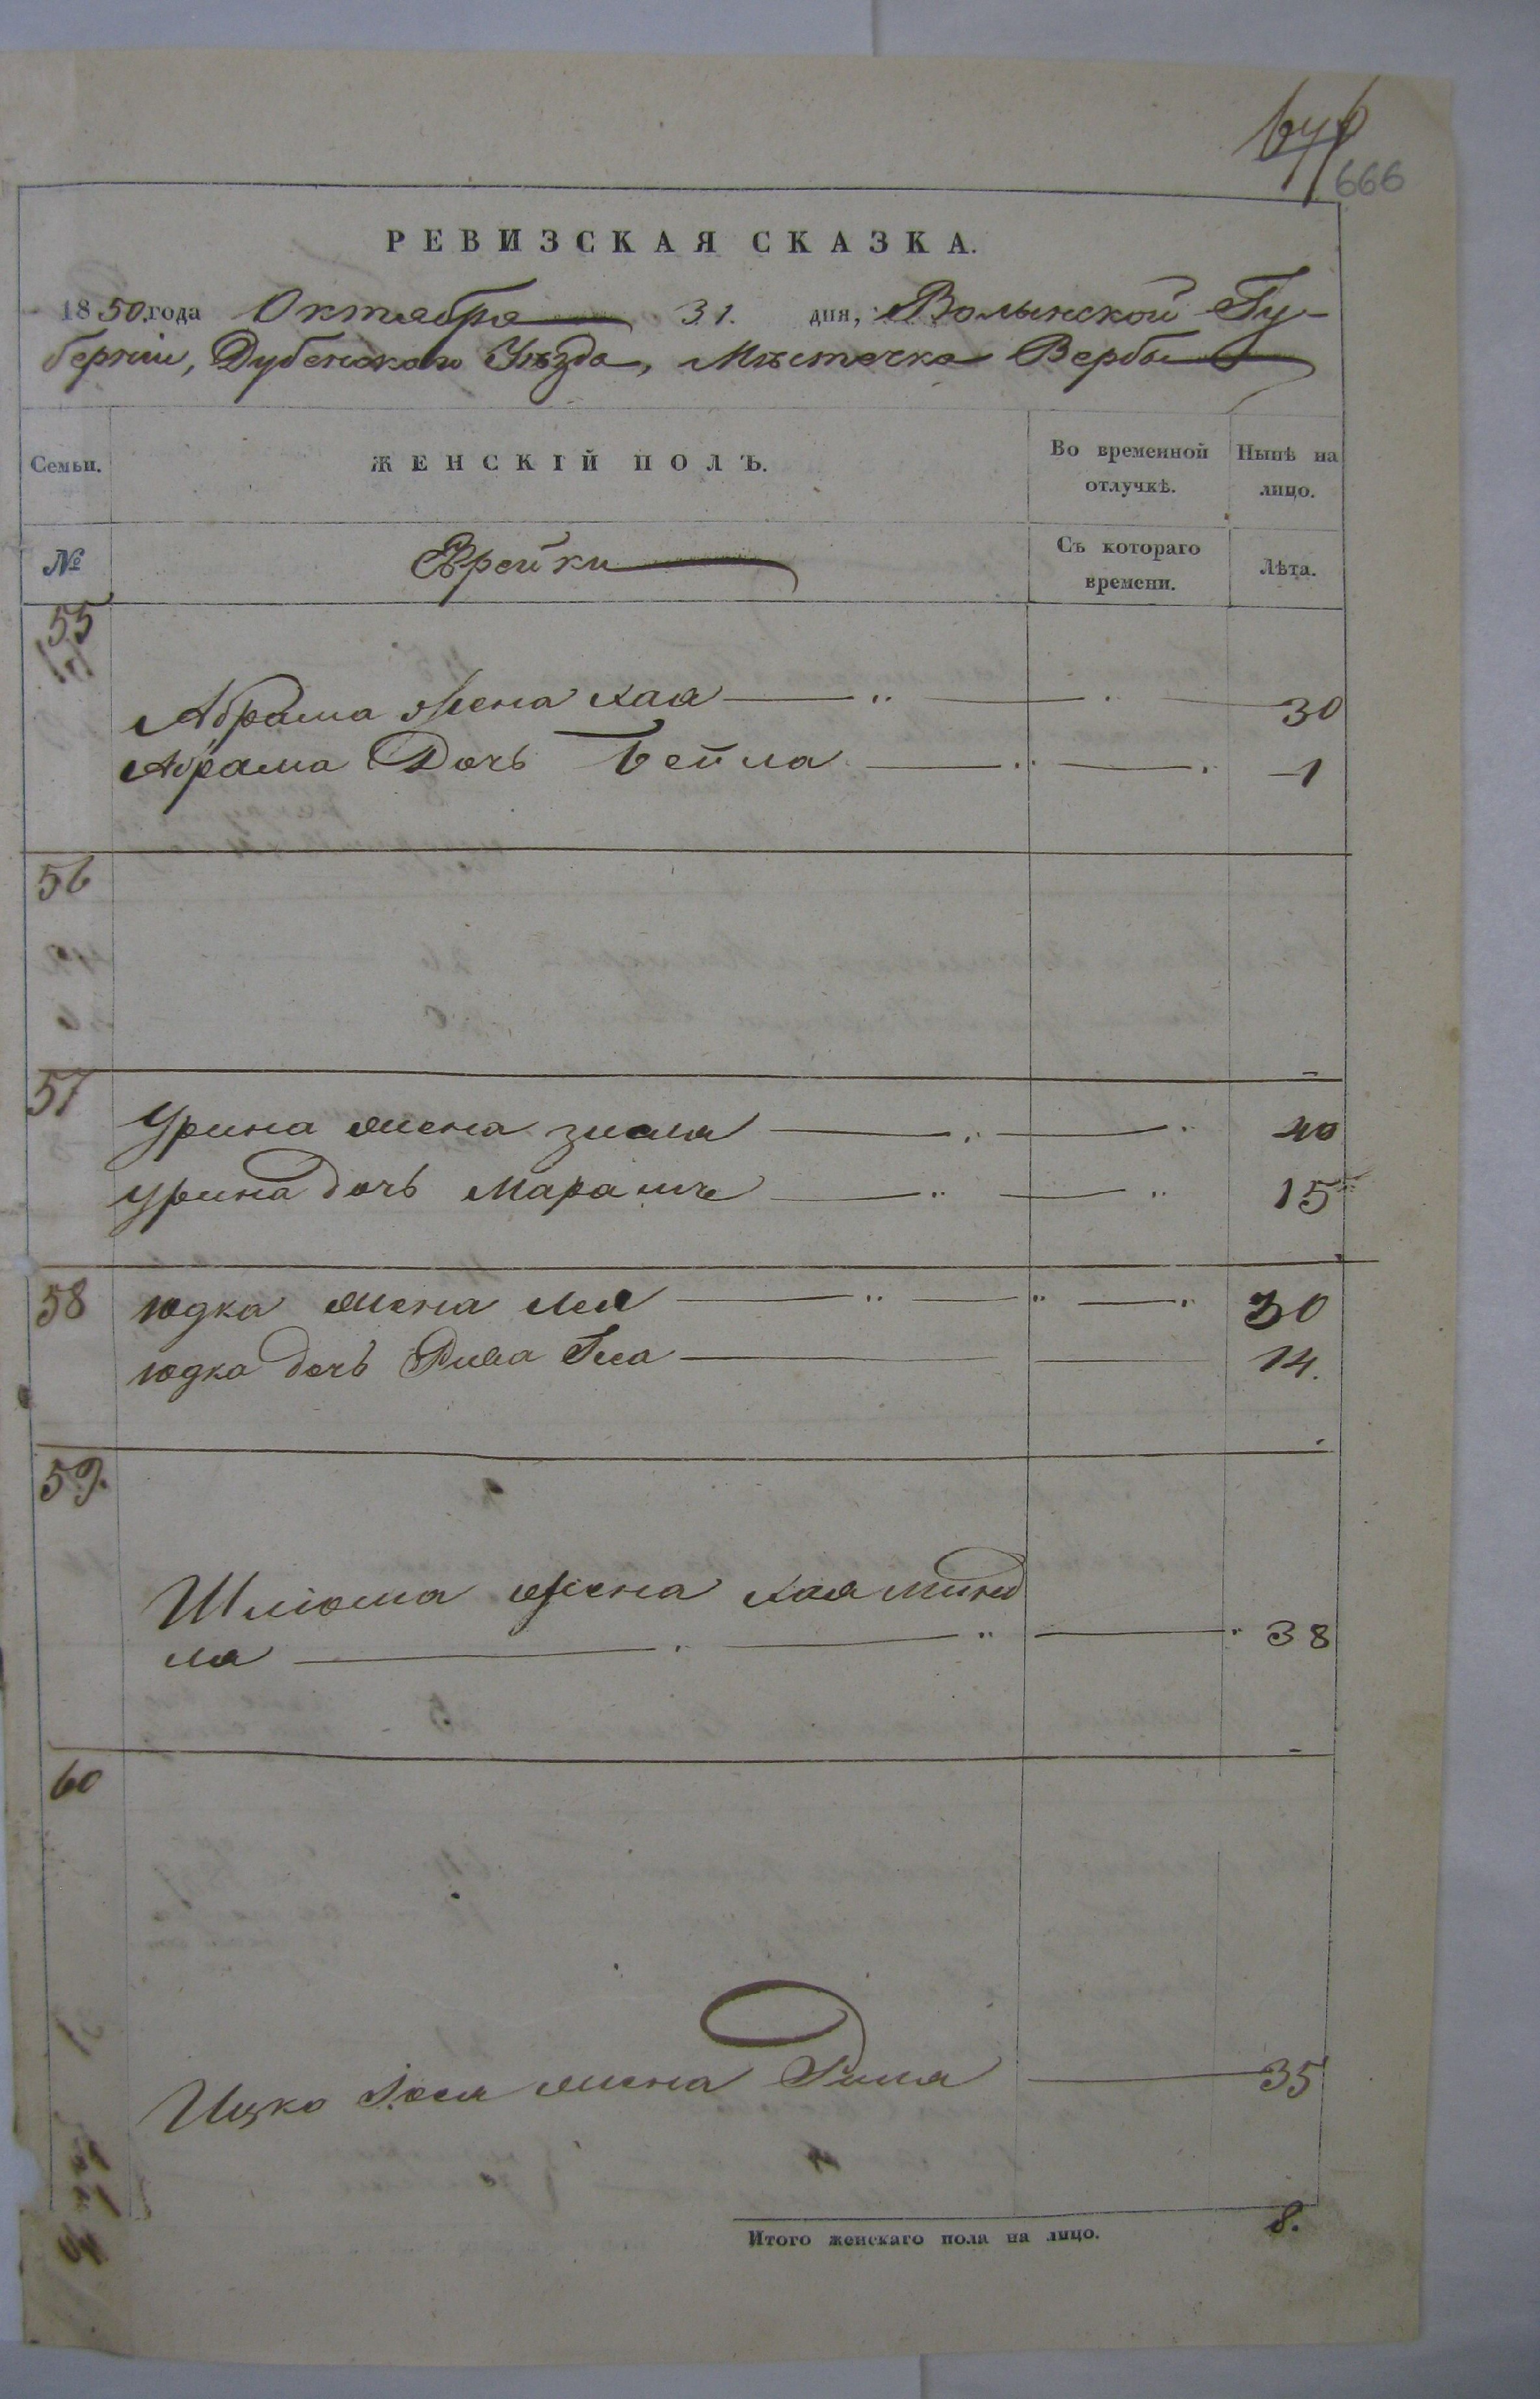 646
666
РЕВИЗСКАЯ СКАЗКА.
1850 года Октября 31. дня, Волынской Гу-
берніи, Дубенскаго Уѣзда, Мѣстечка Вербы
Семьи. ЖЕНСКІЙ ПОЛЪ. Во временной отлучкѣ. Нынѣ на лицо.
№ Еврейки Съ котораго времени. Лѣта.
55
Абрама жена Хая 30
Абрама Дочь Бейла 1
56
57
Урина жена зисля 40
Урина дочь Мара 15
58 юдка жена Лея 30
юдка дочь Рива 14.
59.
Шліома жена Хая минд
ля 38
60
Ицко жена 35
Итого женскаго пола на лицо. 8.